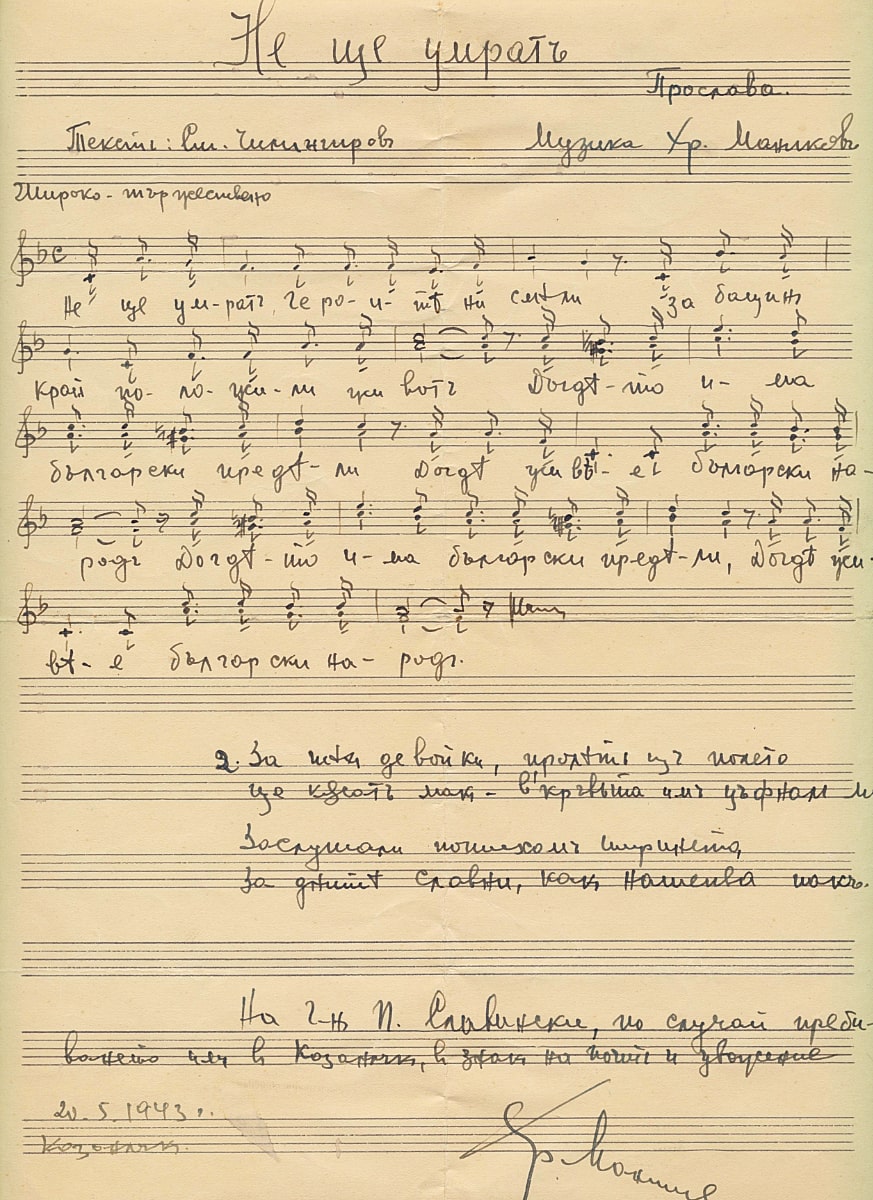 Не ще умратъ
Прослава.
Текстъ: См. Чилингировъ Музика Хр. Маноловъ
Широко - тържествено
Не ще ум-ратъ, Ге ро-и-тѣ ни смѣли за бащинъ
край по-ло-жи-ли жи вотъ Догдѣ-то и-ма
български предѣ-ли Догдѣ живѣ-е български на-
родъ Догдѣ-то и-ма български предѣ-ли, Догдѣ жи-
вѣ-е български на-родъ.
2. За тѣхъ девойки, пролѣть изъ полето
ще кѫсатъ макъ - въ кръвьта имъ цъфнал
Заслушали потихомъ ширинета,
За днитѣ славни, как напева пакъ.
На г-нъ П. Славински, по случай преби-
ването им в Казанлък, в знак на почить и уважение
20.5.1943 г.
Казанлък.
Хр. Манол